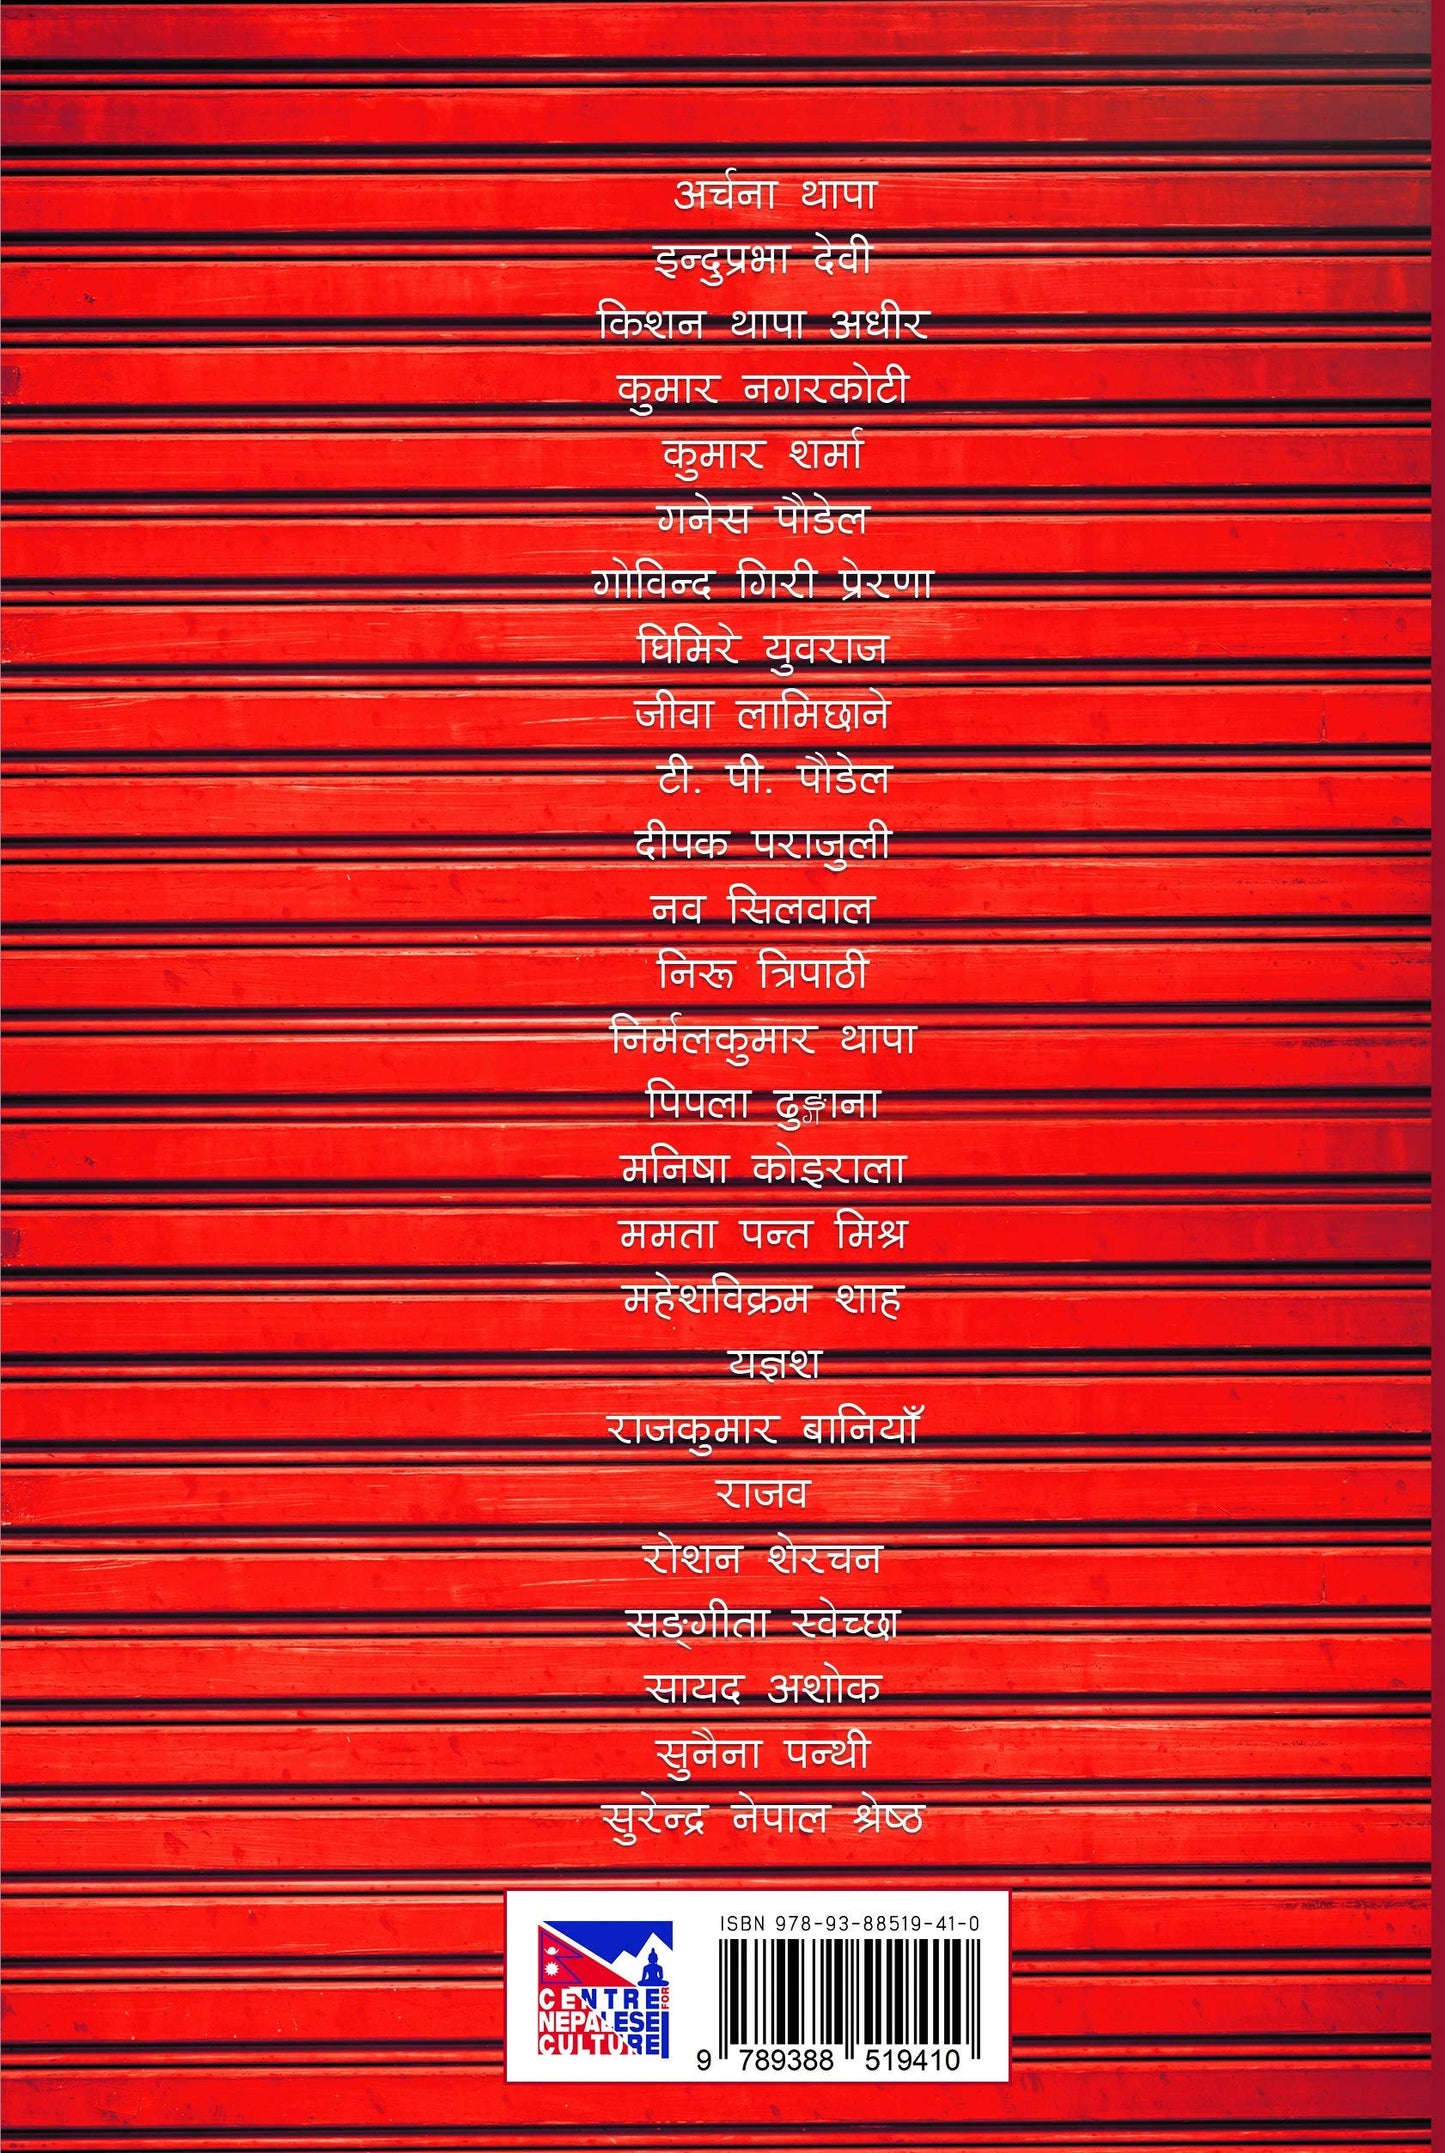 अर्चना थापा
इन्दुप्रभा देवी
किशन थापा अधीर
कुमार नगरकोटी
कुमार शर्मा
गनेस पौडेल
गोविन्द गिरी प्रेरणा
घिमिरे युवराज
जीवा लामिछाने
टी. पी. पौडेल
दीपक पराजुली
नव सिलवाल
निरू त्रिपाठी
निर्मलकुमार थापा
पिपला ढुङ्गाना
मनिषा कोइराला
ममता पन्त मिश्र
महेशविक्रम शाह
यज्ञश
राजकुमार बानियाँ
राजव
रोशन शेरचन
सङ्गीता स्वेच्छा
सायद अशोक
सुनैना पन्थी
सुरेन्द्र नेपाल श्रेष्ठ
CENTRE FOR
NEPALESE
CULTURE
ISBN 978-93-88519-41-0
9 789388 519410